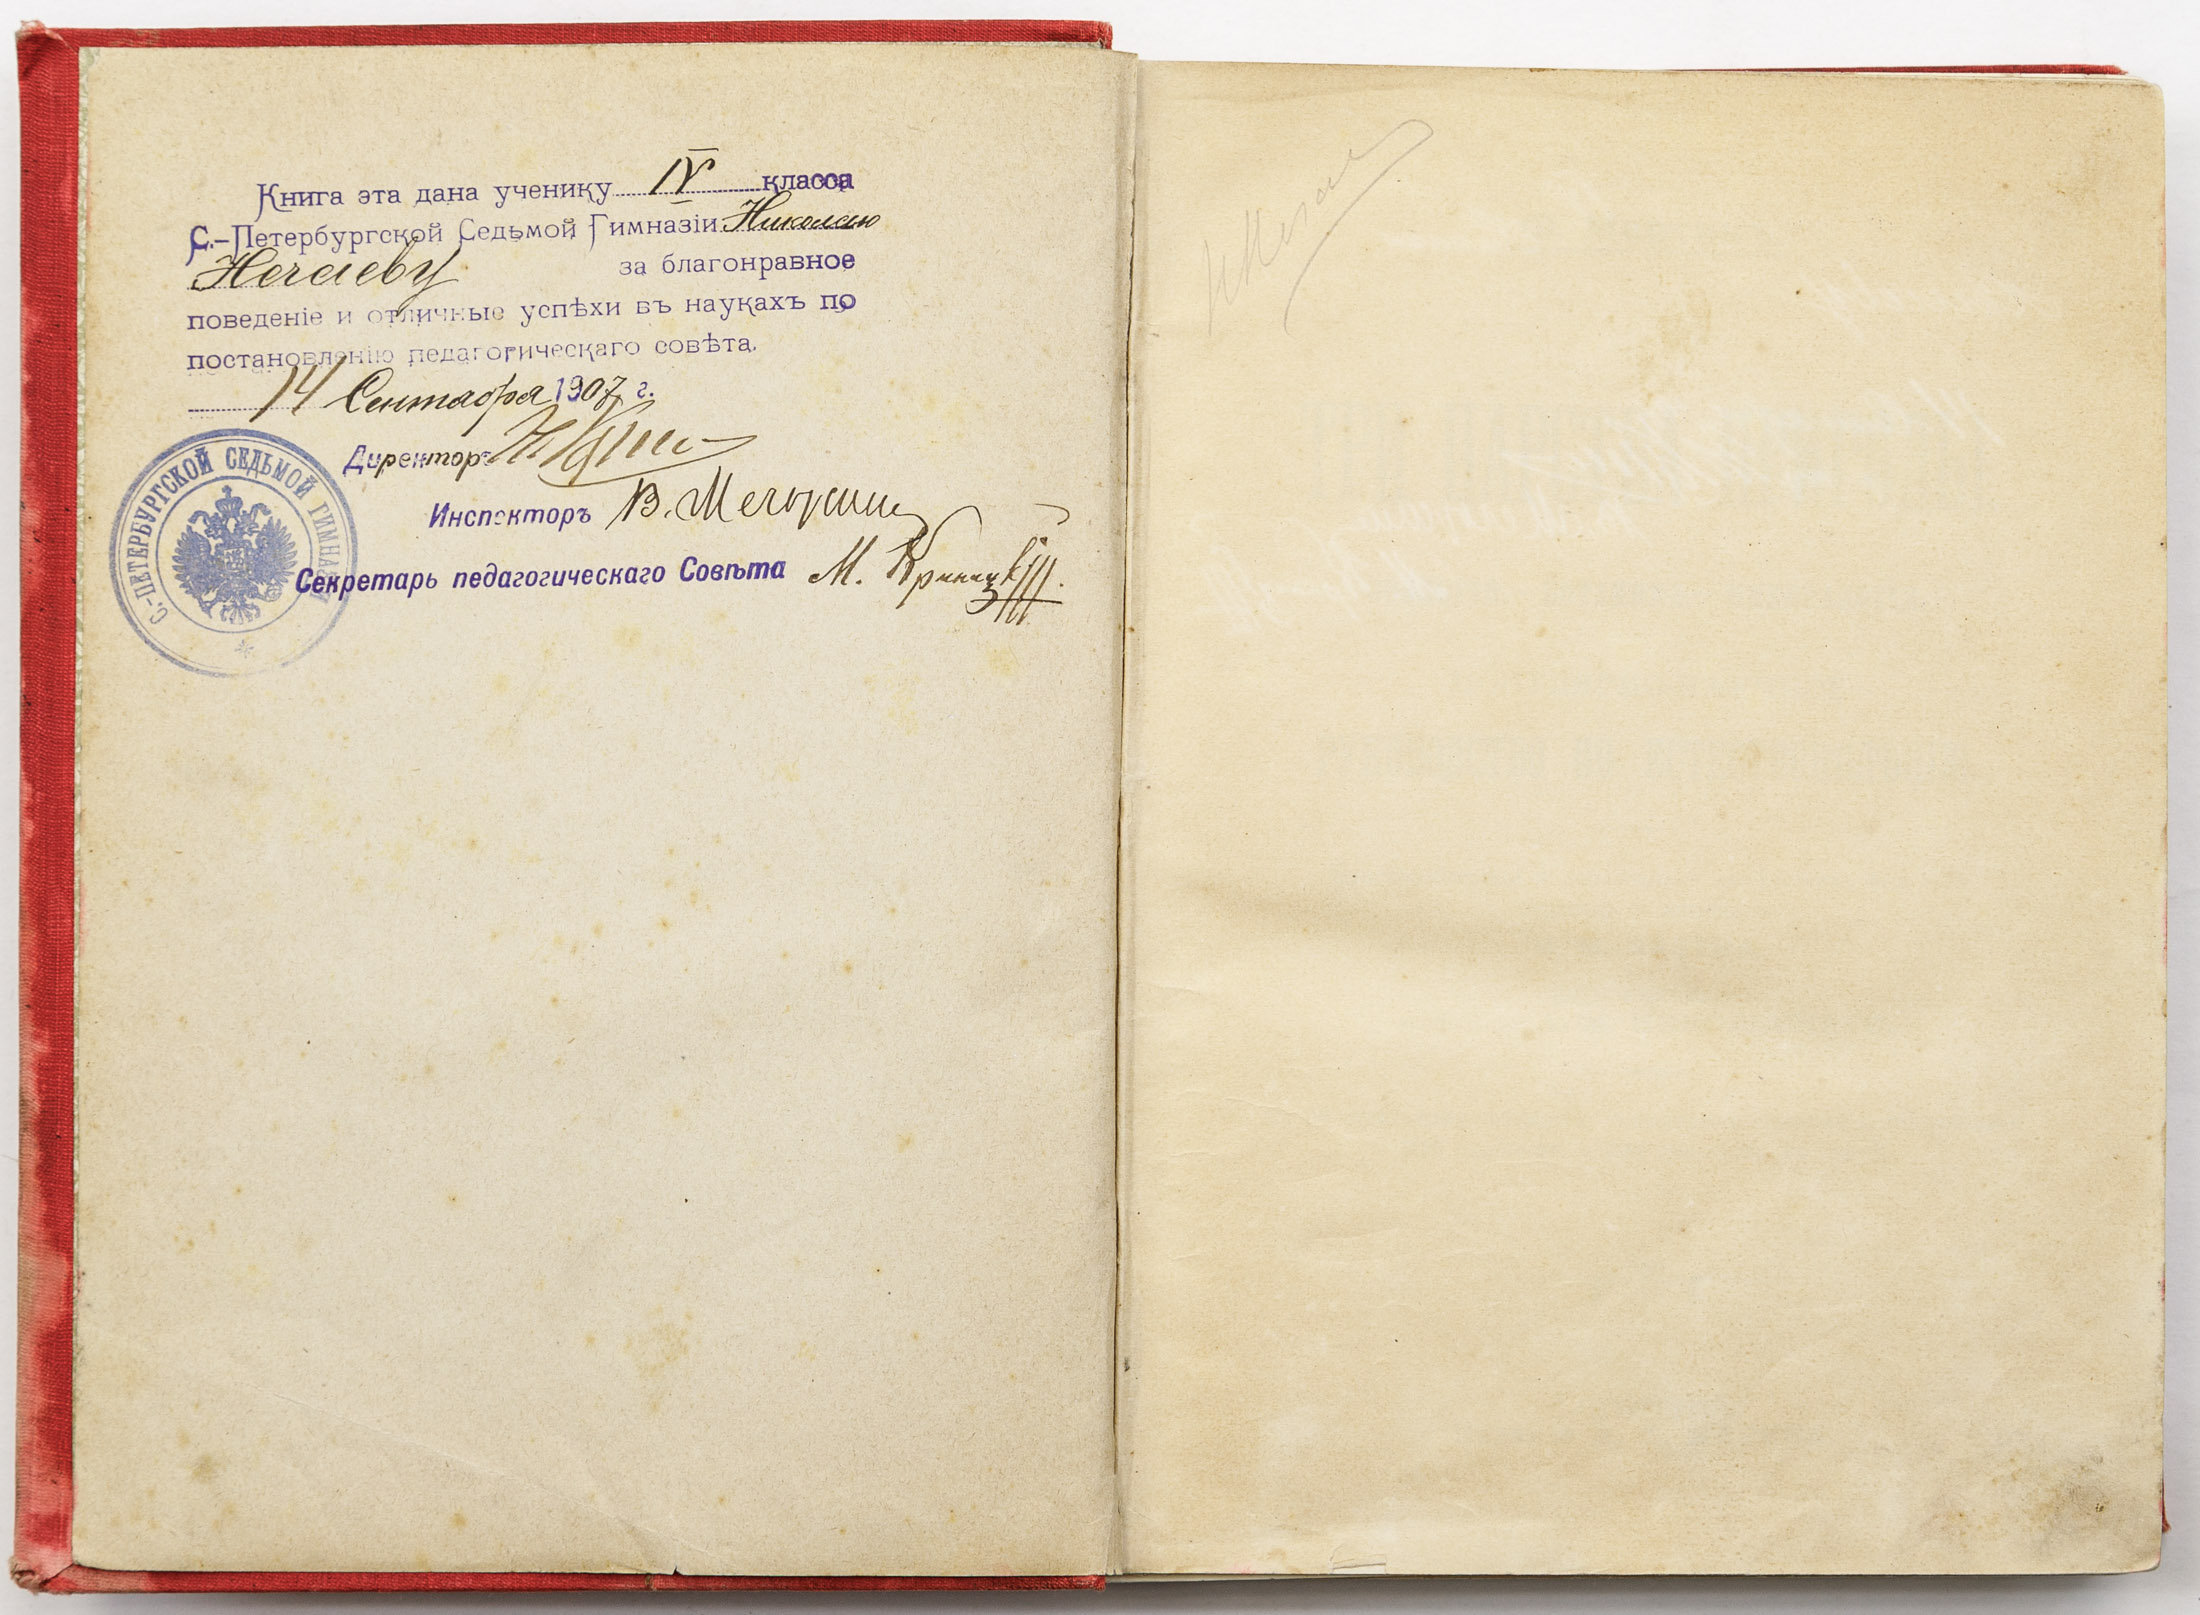 Книга эта дана ученику IV класса
С.-Петербургской Седьмой Гимназіи Николаю
Нечаеву за благонравное
поведеніе и отличные успѣхи въ наукахъ по
постановленію педагогическаго совѣта.
14 Сентября 1907 г.
Директоръ
Инспекторъ В.
Секретарь педагогическаго Совѣта М.
С.-ПЕТЕРБУРГСКОЙ СЕДЬМОЙ ГИМНАЗІИ